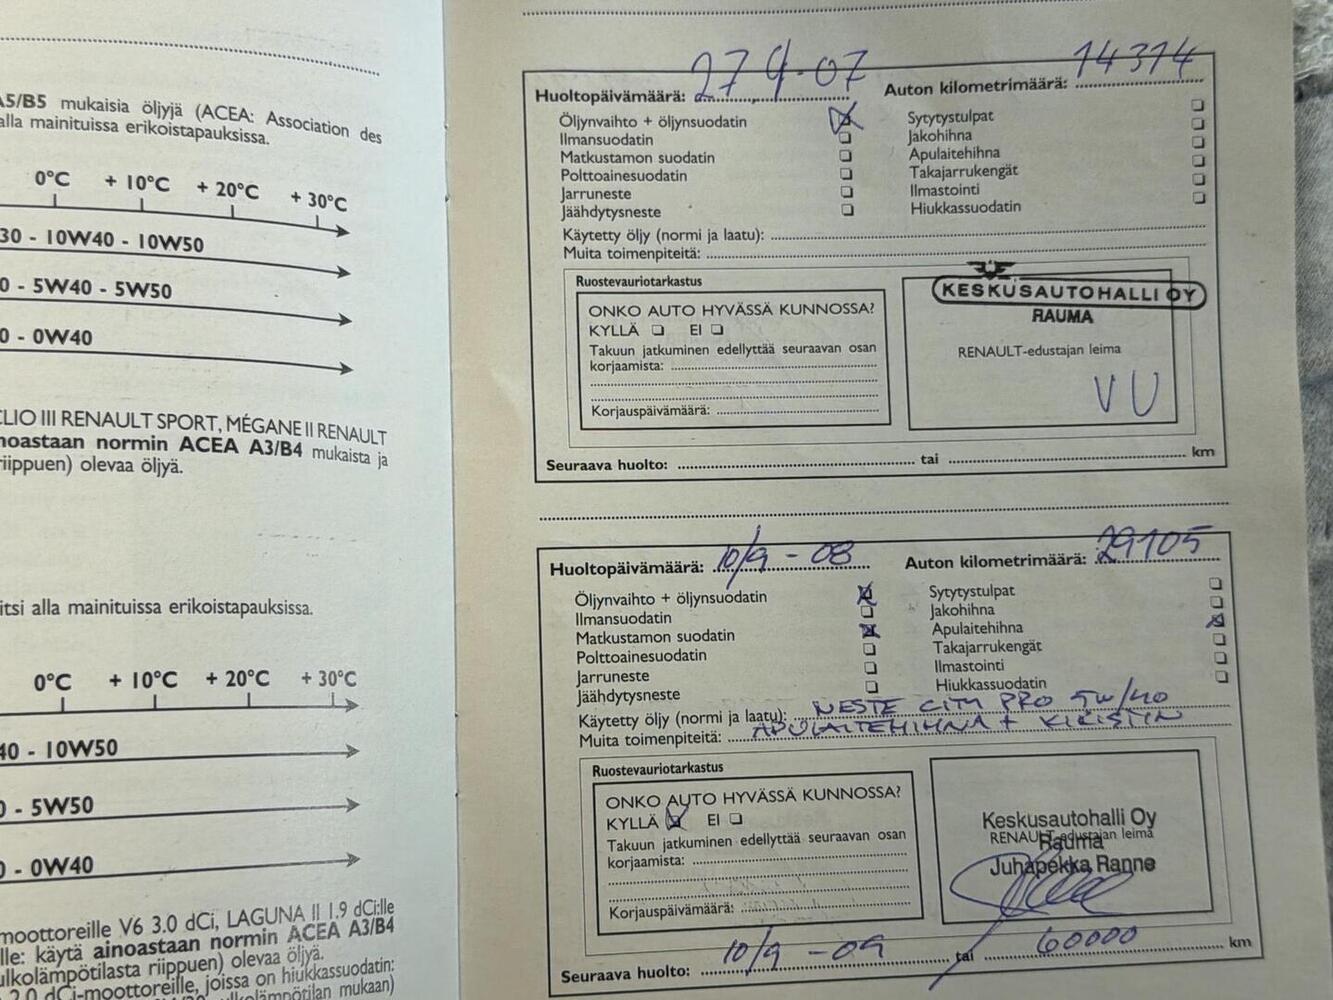 A5/B5 mukaisia öljyjä (ACEA: Association des
alla mainituissa erikoistapauksissa.
0°C + 10°C + 20°C + 30°C
30 - 10W40 - 10W50
0 - 5W40 - 5W50
0 - 0W40
CLIO III RENAULT SPORT, MÉGANE II RENAULT
noastaan normin ACEA A3/B4 mukaista ja
riippuen) olevaa öljyä.
itsi alla mainituissa erikoistapauksissa.
0°C + 10°C + 20°C + 30°C
40 - 10W50
0 - 5W50
0 - 0W40
moottoreille V6 3.0 dCi, LAGUNA II 1.9 dCi:lle
lle: käytä ainoastaan normin ACEA A3/B4
ulkolämpötilasta riippuen) olevaa öljyä.
2.0 dCi-moottoreille, joissa on hiukkassuodatin:
ulkolämpötilan mukaan)
Huoltopäivämäärä: 27.9-07 Auton kilometrimäärä: 14314
Öljynvaihto + öljynsuodatin Sytytystulpat
Ilmansuodatin Jakohihna
Matkustamon suodatin Apulaitehihna
Polttoainesuodatin Takajarrukengät
Jarruneste Ilmastointi
Jäähdytysneste Hiukkassuodatin
Käytetty öljy (normi ja laatu):
Muita toimenpiteitä:
Ruostevauriotarkastus
ONKO AUTO HYVÄSSÄ KUNNOSSA?
KYLLÄ EI
Takuun jatkuminen edellyttää seuraavan osan
korjaamista:
Korjauspäivämäärä:
KESKUSAUTOHALLI OY
RAUMA
RENAULT-edustajan leima
VU
Seuraava huolto: tai km
Huoltopäivämäärä: 10/9 - 08 Auton kilometrimäärä: 29105
Öljynvaihto + öljynsuodatin Sytytystulpat
Ilmansuodatin Jakohihna
Matkustamon suodatin Apulaitehihna
Polttoainesuodatin Takajarrukengät
Jarruneste Ilmastointi
Jäähdytysneste Hiukkassuodatin
Käytetty öljy (normi ja laatu): NESTE CITY PRO 5W/40
Muita toimenpiteitä: APULAITEHIHNA + KIRISTIN
Ruostevauriotarkastus
ONKO AUTO HYVÄSSÄ KUNNOSSA?
KYLLÄ EI
Takuun jatkuminen edellyttää seuraavan osan
korjaamista:
Korjauspäivämäärä:
Keskusautohalli Oy
RENAULT-edustajan leima
Rauma
Juhapekka Ranne
Seuraava huolto: 10/9 - 09 tai 60000 km